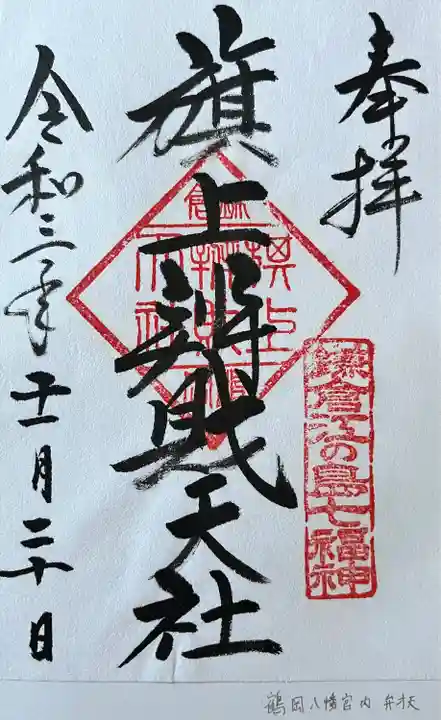 奉拝
鎌倉江の島七福神
旗上辨財天社
令和三年十一月二十日
鶴岡八幡宮内 弁才天